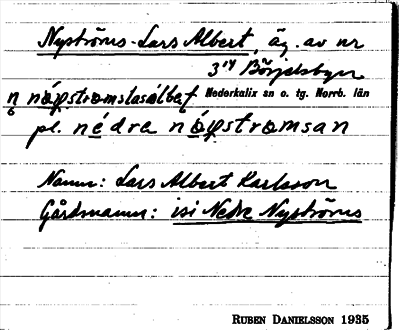 Nyströms-Lars Albert, äg. av nr
3 14 Börjelsbyn
Nederkalix sn o. tg. Norrb. län
pl. nédra
Namn: Lars Albert Karlsson
Gårdsnamn: isi Nedre Nyströms
RUBEN DANIELSSON 1935